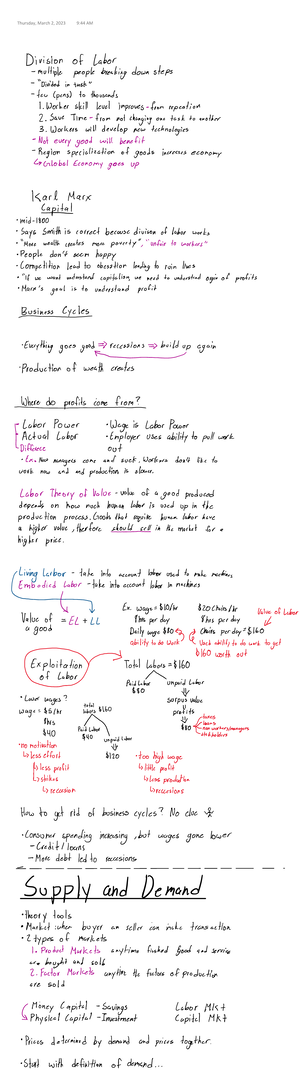 Thursday, March 2, 2023 9:44 AM
Division of Labor
- multiple people breaking down steps
- "Divided in task"
- few (pens) to thousands
1. Worker skill level improves - from repeation
2. Save Time - from not changing one task to another
3. Workers will develop new technologies
- Not every good will benefit
- Region specialization of goods increases economy
↳ Global Economy goes up
Karl Marx
Capital
• mid-1800
• Says Smith is correct because division of labor works
• "More wealth creates more poverty", "unfair to workers"
• People don't seem happy
• Competition lead to obesstion leading to ruin lives
• "If we want understand capitalism, we need to understand orgin of profits
• Marx's goal is to understand profit
Business Cycles
• Everything goes good ⇒ recessions ⇒ build up again
• Production of weath creates
Where do profits come from?
- Labor Power • Wage is Labor Power
- Actual Labor • Employer uses ability to pull work out
Difference
• Ex. New managers come and suck. Workers don't like to
work now and and production is slower.
Labor Theory of Value - value of a good produced
depends on how much human labor is used up in the
production process. Goods that require human labor have
a higher value, therefore should sell in the market for a
higher price.
Living Larbor - take into account labor used to make machines
Embodied Labor - take into account labor in machines
Value of a good = EL + LL
Ex. wage = $10/hr
8hrs per day
Daily wage $80
ability to do work
$20 Chairs/hr
8hrs per day
Chairs per day = $160
Value of Labor
Used ability to do work to get
$160 worth out
Exploitation of Labor
Total Labors = $160
Paid Labor
$80
unpaid Labor
surpus value
profits
$80
taxes
loans
non workers/managers
stockholders
• Lower wages?
wage = $5/hr
8hrs
$40
total labors $160
Paid Labor
$40
unpaid Labor
$120
• no motivation
↳ less effort
↳ less profit
↳ strikes
↳ recession
• too high wage
↳ little profit
↳ less production
↳ recessions
How to get rid of business cycles? No clue
• Consumer spending increasing, but wages gone lower
- Credit / loans
- More debt led to reccesions
Supply and Demand
• Theory tools
• Market: when buyer an seller can make transaction
• 2 types of markets
1. Product Markets anytime finished good and service
are bought and sold.
2. Factor Markets anytime the factors of production
are sold
Money Capital - Savings Labor Mkt
Physical Capital - Investment Capital Mkt
• Prices determined by demand and prices together.
• Start with definition of demand...